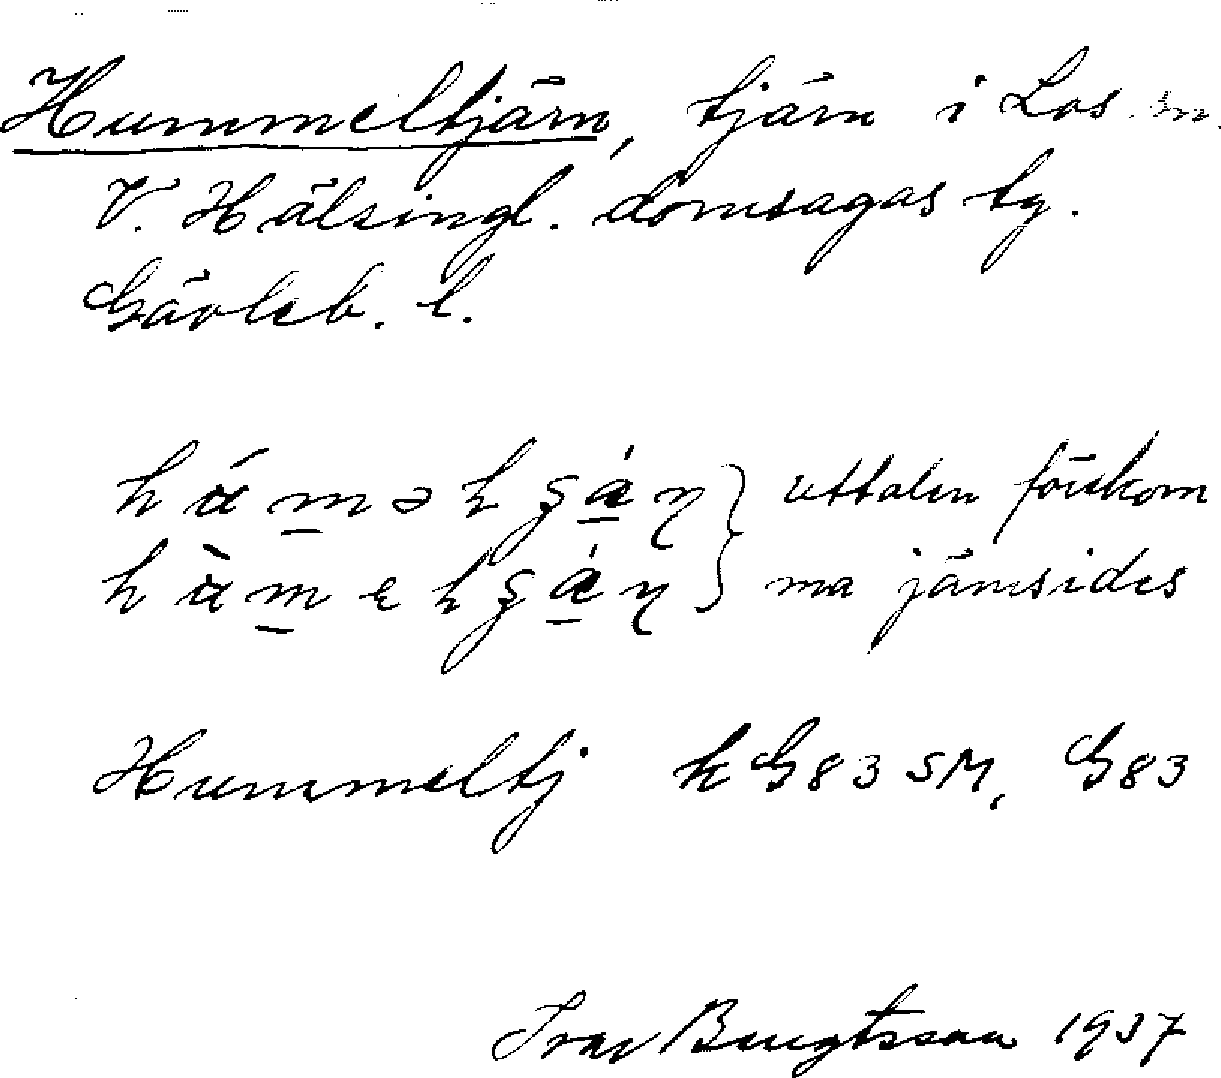 Hummeltjärn, tjärn i Los sn.
V. Hälsingl. domsagas tg.
Gävleb. l.
uttalen förekom
ma jämsides
Hummeltj k G83 SM, G83
Ivar Bengtsson 1937